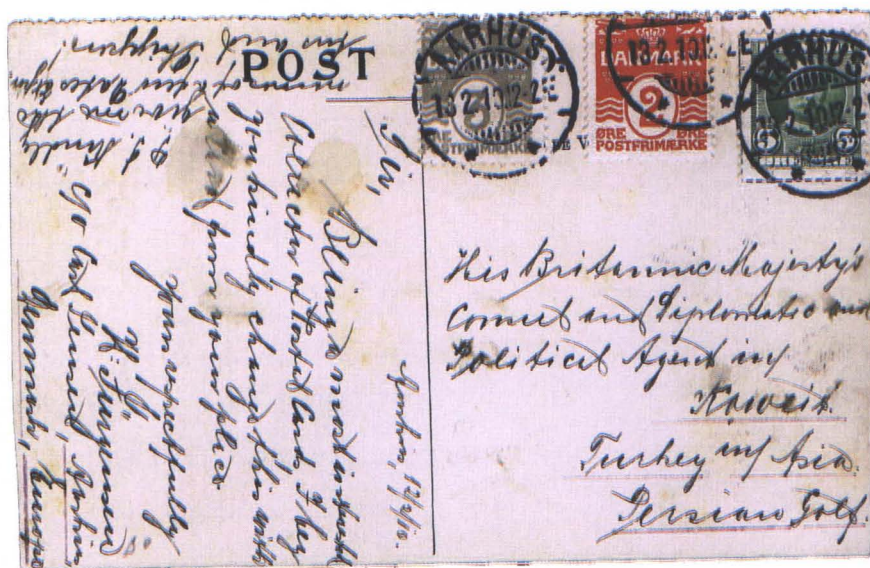 POST
AARHUS
13.2.10.12-2E
ØRE
POSTFRIMÆRKE
DANMARK
2
ØRE ØRE
POSTFRIMÆRKE
13.2.10.12-2E
AARHUS
5 5
His Britannic Majesty's
Consul and Diplomatic and
Political Agent in
Koweit.
Turkey in Asia.
Persian Golf.
12/2/10.
Sir,
Being a most
Collector of Postal Cards I beg
you kindly change this with
a Card from your place
Yours respectfully
H. Jürgensen
c/o Carl Aarhus,
Denmark, Europe
P.S. Kindly
give me also
names of a few Dates
ors and Shippers!